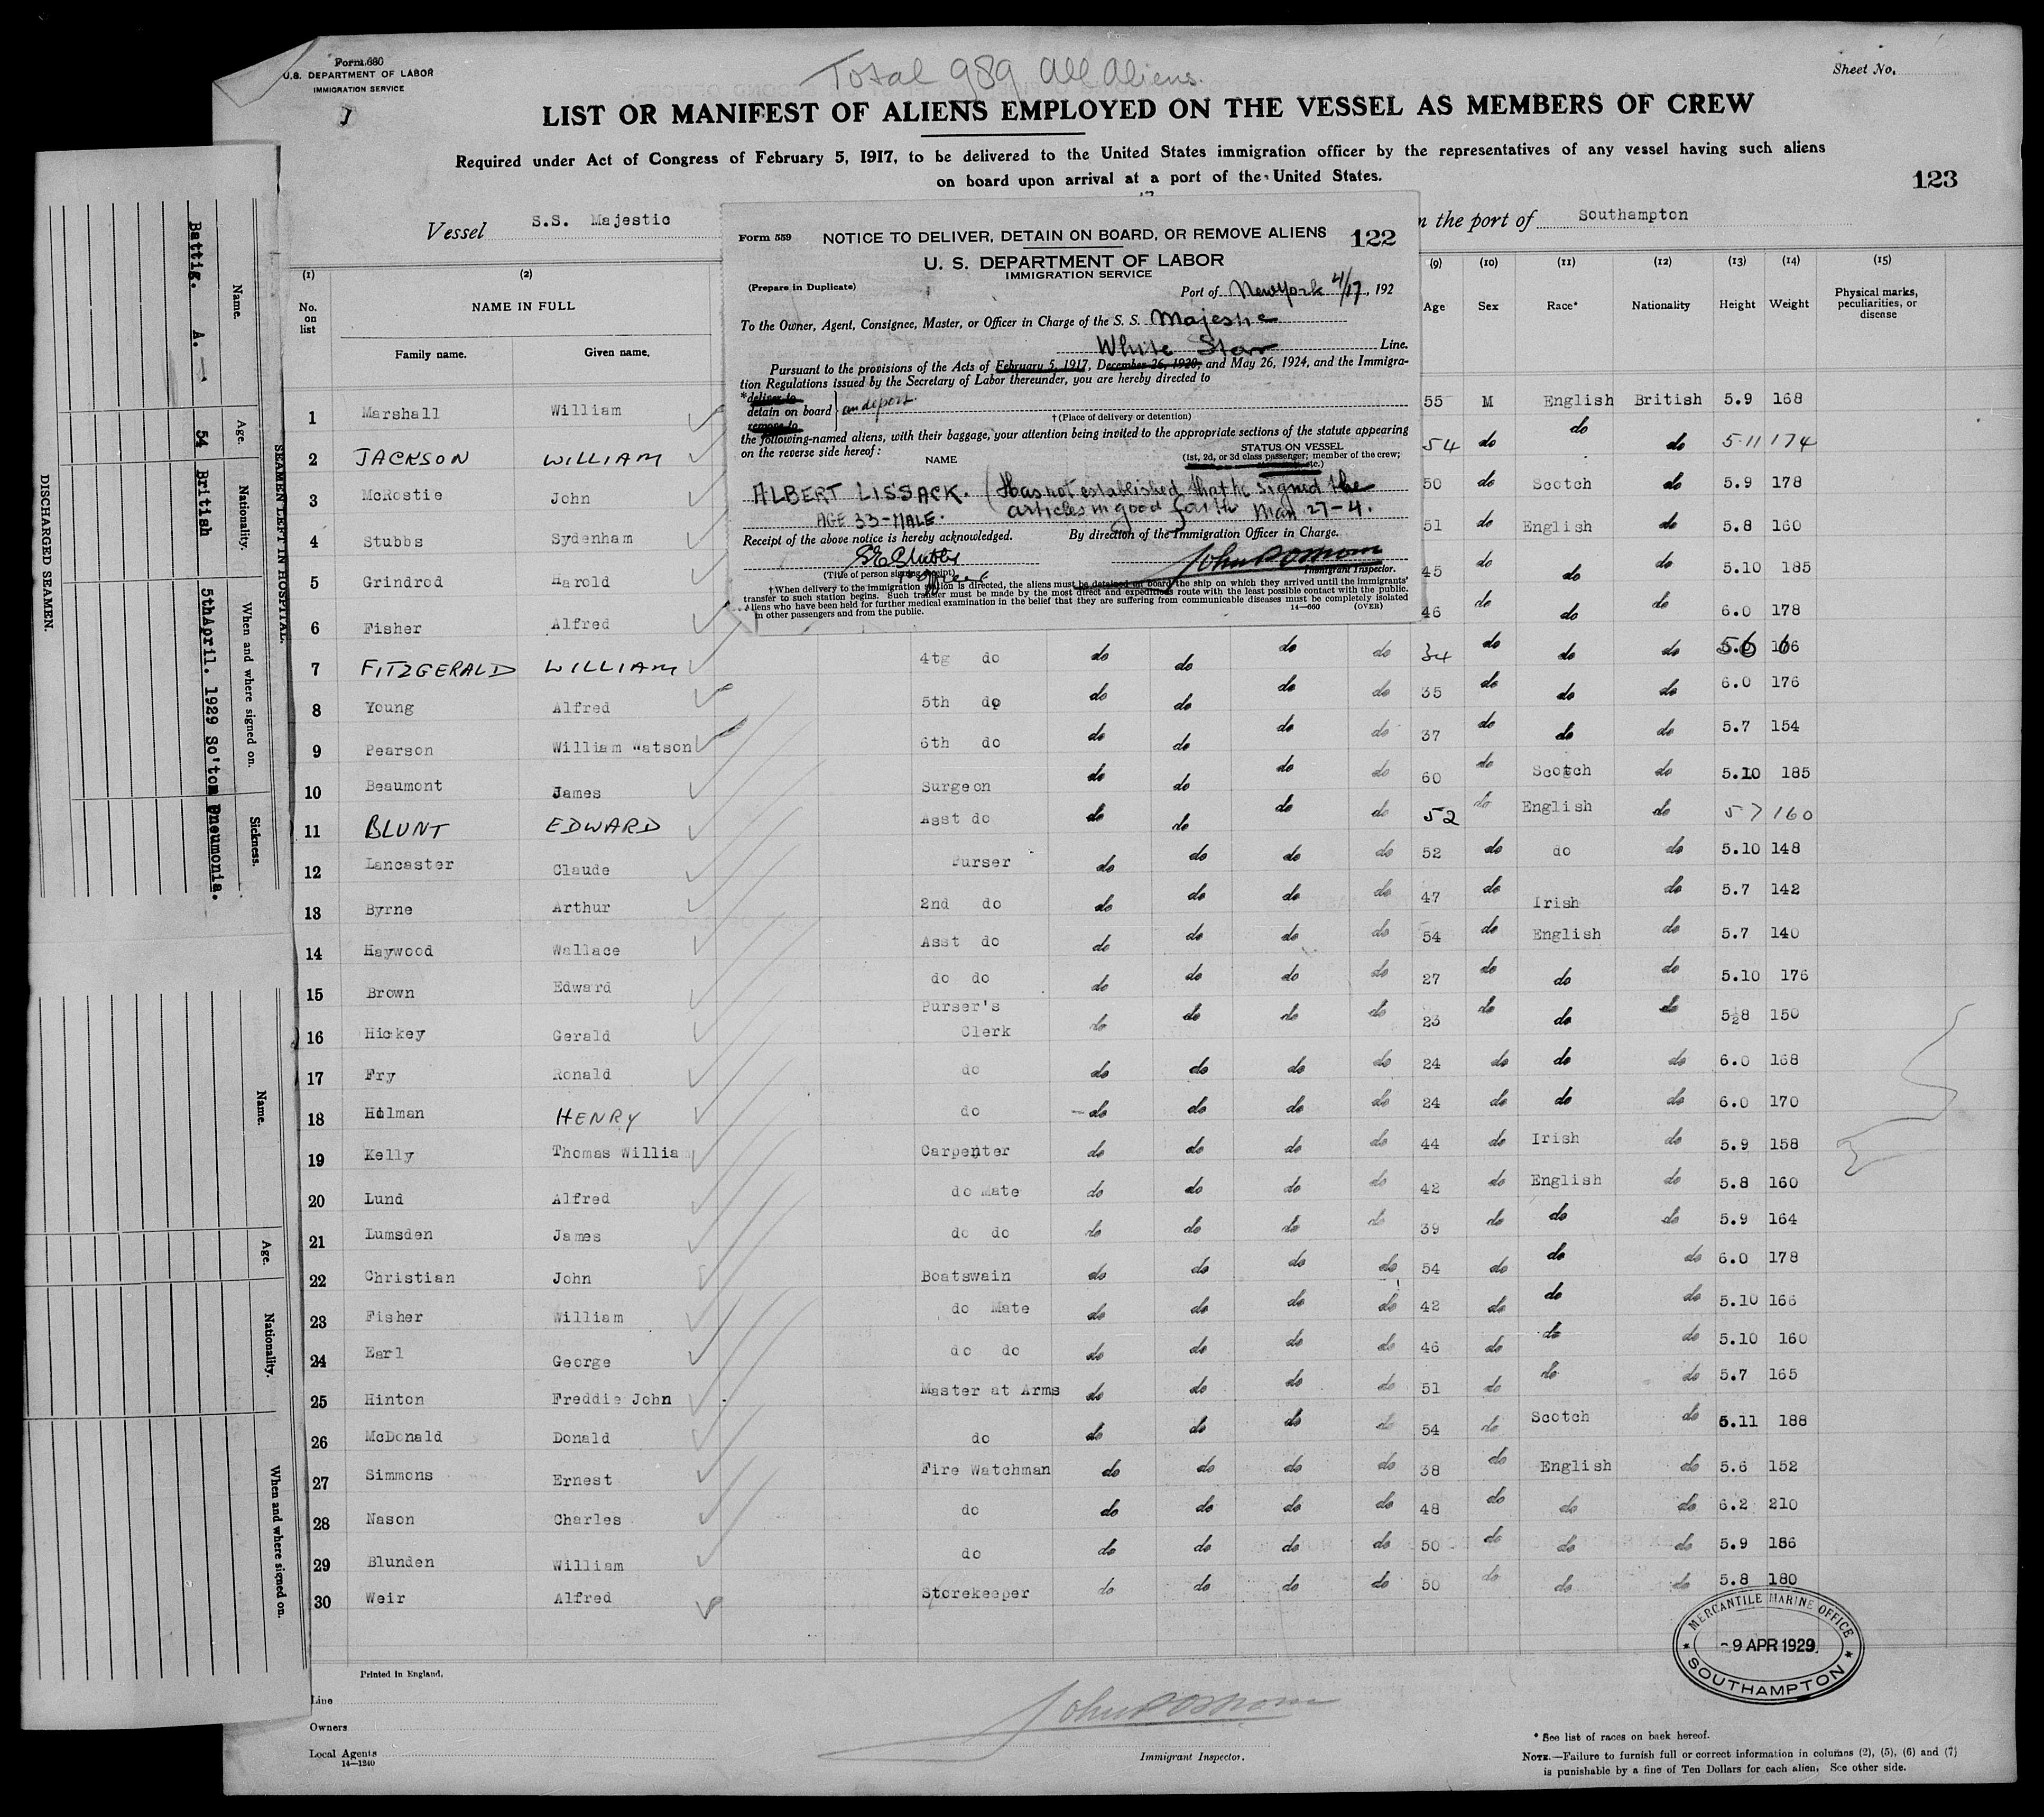 Form 680
U.S. DEPARTMENT OF LABOR
IMMIGRATION SERVICE
Total 989 All Aliens.
Sheet No.
LIST OR MANIFEST OF ALIENS EMPLOYED ON THE VESSEL AS MEMBERS OF CREW
Required under Act of Congress of February 5, 1917, to be delivered to the United States immigration officer by the representatives of any vessel having such aliens
on board upon arrival at a port of the United States.
123
Vessel S.S. Majestic
the port of Southampton
Form 559 NOTICE TO DELIVER, DETAIN ON BOARD, OR REMOVE ALIENS 122
U. S. DEPARTMENT OF LABOR
IMMIGRATION SERVICE
(Prepare in Duplicate)
Port of New York 4/17, 192
To the Owner, Agent, Consignee, Master, or Officer in Charge of the S. S. Majestic
White Star Line.
Pursuant to the provisions of the Acts of February 5, 1917, December 26, 1920, and May 26, 1924, and the Immigra-
tion Regulations issued by the Secretary of Labor thereunder, you are hereby directed to
*deliver to
detain on board
remove to
an deport.
† (Place of delivery or detention)
the following-named aliens, with their baggage, your attention being invited to the appropriate sections of the statute appearing
on the reverse side hereof:
NAME
STATUS ON VESSEL
(1st, 2d, or 3d class passenger; member of the crew;
etc.)
ALBERT LISSACK. (Has not established that he signed the
AGE 33-MALE. articles in good faith Man 27-4.
Receipt of the above notice is hereby acknowledged.
By direction of the Immigration Officer in Charge.
(Title of person signing receipt)
Immigrant Inspector.
† When delivery to the immigration station is directed, the aliens must be detained on board the ship on which they arrived until the immigrants'
transfer to such station begins. Such transfer must be made by the most direct and expeditious route with the least possible contact with the public.
Aliens who have been held for further medical examination in the belief that they are suffering from communicable diseases must be completely isolated
m other passengers and from the public.
14—660 (OVER)
(1) (2) (9) (10) (11) (12) (13) (14) (15)
No. on list
NAME IN FULL
Family name. Given name.
Age Sex Race* Nationality Height Weight Physical marks, peculiarities, or disease
1 Marshall William 55 M English British 5.9 168
2 JACKSON WILLIAM 54 do do do 5 11 174
3 McRostie John 50 do Scotch do 5.9 178
4 Stubbs Sydenham 51 do English do 5.8 160
5 Grindrod Harold 45 do do do 5.10 185
6 Fisher Alfred 46 do do do 6.0 178
7 FITZGERALD WILLIAM 4tg do do do do do 34 do do do 56
8 Young Alfred 5th do do do do do 35 do do do 6.0 176
9 Pearson William Watson 6th do do do do do 37 do do do 5.7 154
10 Beaumont James Surgeon do do do do 60 do Scotch do 5.10 185
11 BLUNT EDWARD Asst do do do do do 52 do English do 5 7 160
12 Lancaster Claude Purser do do do do 52 do do do 5.10 148
13 Byrne Arthur 2nd do do do do do 47 do Irish do 5.7 142
14 Haywood Wallace Asst do do do do do 54 do English do 5.7 140
15 Brown Edward do do do do do do 27 do do do 5.10 176
16 Hickey Gerald Purser's Clerk do do do do 23 do do do 5½8 150
17 Fry Ronald do do do do do 24 do do do 6.0 168
18 Holman HENRY do do do do do 24 do do do 6.0 170
19 Kelly Thomas Willia Carpenter do do do do 44 do Irish do 5.9 158
20 Lund Alfred do Mate do do do do 42 do English do 5.8 160
21 Lumsden James do do do do do do 39 do do do 5.9 164
22 Christian John Boatswain do do do do 54 do do do 6.0 178
23 Fisher William do Mate do do do do 42 do do do 5.10 166
24 Earl George do do do do do do 46 do do do 5.10 160
25 Hinton Freddie John Master at Arms do do do do 51 do do do 5.7 165
26 McDonald Donald do do do do do 54 do Scotch do 5.11 188
27 Simmons Ernest Fire Watchman do do do do 38 do English do 5.6 152
28 Nason Charles do do do do do 48 do do do 6.2 210
29 Blunden William do do do do do 50 do do do 5.9 186
30 Weir Alfred Storekeeper do do do do 50 do do do 5.8 180
MERCANTILE MARINE OFFICE
9 APR 1929
SOUTHAMPTON
Printed in England.
Line
Owners
Local Agents
14—1240
Immigrant Inspector.
* See list of races on back hereof.
NOTE.—Failure to furnish full or correct information in columns (2), (5), (6) and (7)
is punishable by a fine of Ten Dollars for each alien. See other side.
SEAMEN LEFT IN HOSPITAL.
Name. Age. Nationality. When and where signed on. Sickness.
Battig. A. 54 British 5thApril. 1929 So'ton Pneumonia.
DISCHARGED SEAMEN.
Name. Age. Nationality. When and where signed on.